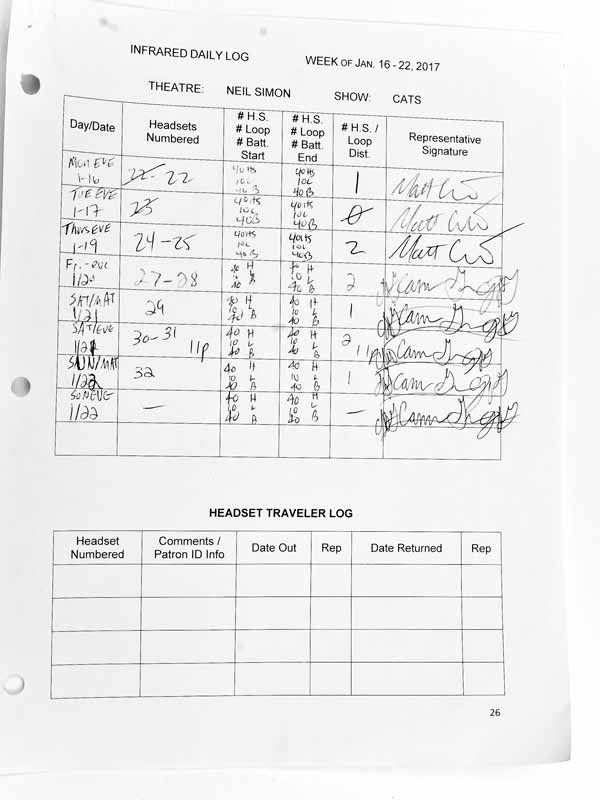 INFRARED DAILY LOG WEEK OF JAN. 16 - 22, 2017
THEATRE: NEIL SIMON SHOW: CATS
Day/Date
Headsets
Numbered
# H.S.
# Loop
# Batt.
Start
# H.S.
# Loop
# Batt.
End
# H.S. /
Loop
Dist.
Representative
Signature
MON EVE
1-16
22
40 HS
10L
40B
40HS
10L
40B
1
TUE EVE
1-17
23
40HS
10L
40B
40HS
10L
40B
0
THURS EVE
1-19
24-25
40HS
10L
40B
40HS
10L
40B
2
Matt
Fri-eve
1/20
27-28
40 H
10 L
40 B
40 H
10 L
40 B
2
SAT/MAT
1/21
29
40 H
10 L
40 B
40 H
10 L
40 B
1
SAT/EVE
1/21
30-31
11p
40 H
10 L
40 B
40 H
10 L
40 B
2
11p
SUN/MAT
1/22
32
40 H
10 L
40 B
40 H
10 L
40 B
1
SUN EVE
1/22
—
40 H
10 L
40 B
40 H
10 L
40 B
—
HEADSET TRAVELER LOG
Headset
Numbered
Comments /
Patron ID Info
Date Out
Rep
Date Returned
Rep
26